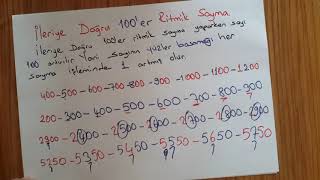 İleriye Doğru 100'er Ritmik Sayma
İleriye Doğru 100'er ritmik sayma yaparken sayı
100 artırılır. Yani sayının yüzler basamağı her
sayma işleminde 1 artmış olur.
400-500-600-700-800-900-1000-1100-1200
200-300-400-500-600-700-800-900
2300-2400-2500-2600-2700-2800-2900
5250-5350-5450-5550-5650-5750